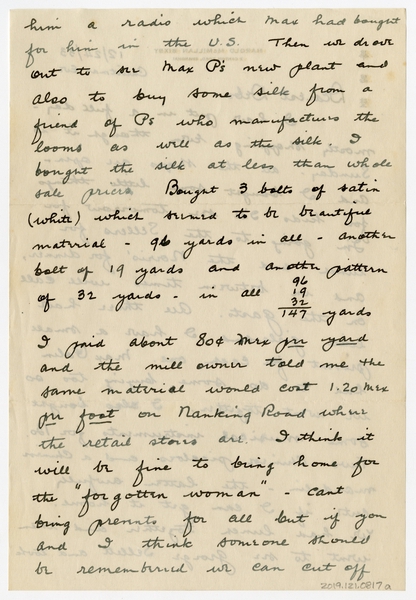 him a radio which Max had bought
for him in the U.S. Then we drove
out to see Max P's new plant and
also to buy some silk from a
friend of P's who manufactures the
looms as well as the silk. I
bought the silk at less than whole
sale prices. Bought 3 bolts of satin
(white) which seemed to be beautiful
material - 96 yards in all - another
bolt of 19 yards and another pattern
of 32 yards - in all
96
19
32
147 yards
I paid about 80¢ Mex per yard
and the mill owner told me the
same material would cost 1.20 Mex
per foot on Nanking Road where
the retail stores are. I think it
will be fine to bring home for
the "forgotten woman" - cant
bring presents for all but if you
and I think someone should
be remembered we can cut off
2019.121.0817a